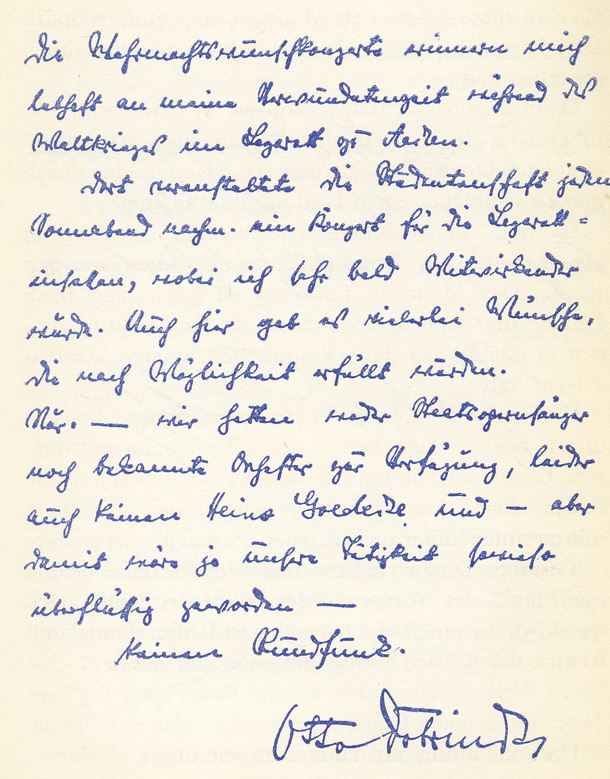 Die Wehrmachtswunschkonzerte erinnern mich
lebhaft an meine Verwundetenzeit während des
Weltkrieges im Lazarett zu Aachen.
Dort veranstaltete die Studentenschaft jeden
Sonnabend nachm. ein Konzert für die Lazarett=
insassen, wobei ich sehr bald Mitwirkender
wurde. Auch hier gab es vielerlei Wünsche,
die nach Möglichkeit erfüllt wurden.
Nur. — wir hatten weder Staatsopernsänger
noch bekannte Orchester zur Verfügung, leider
auch keinen Heinz Goedecke und – aber
damit wäre ja unsere Tätigkeit sowieso
überflüssig geworden —
keinen Rundfunk.
Otto Dobrindt